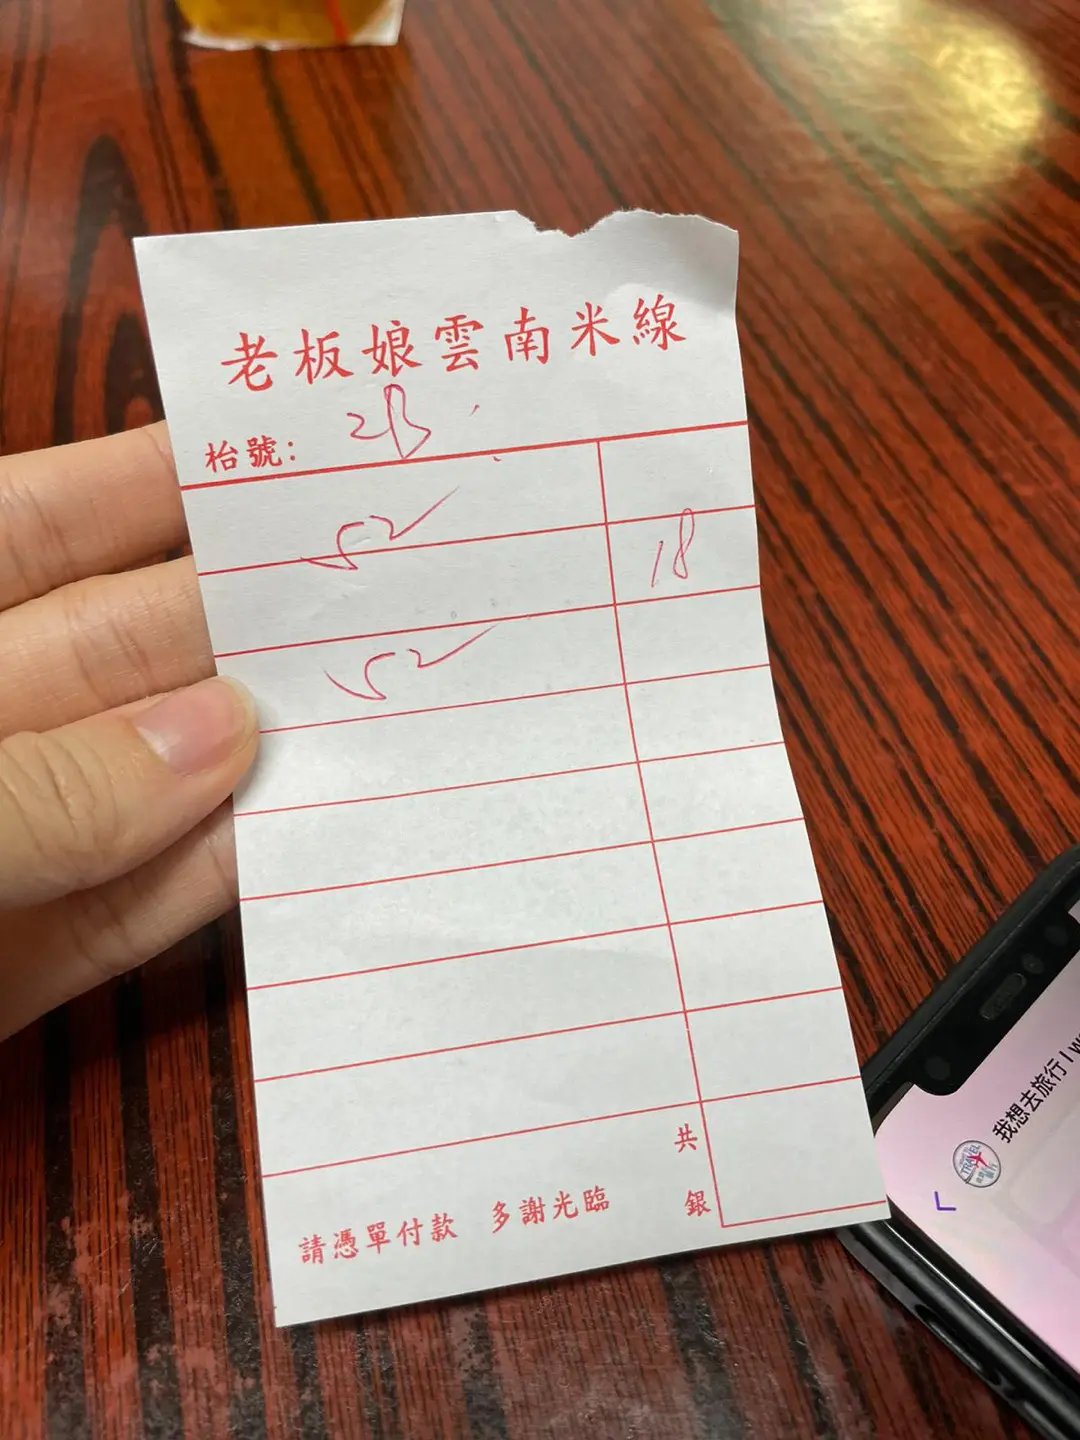 老板娘雲南米線
枱號: 2B
52
18
52
共
銀
請憑單付款 多謝光臨
我想去旅行 I w
TRAVEL